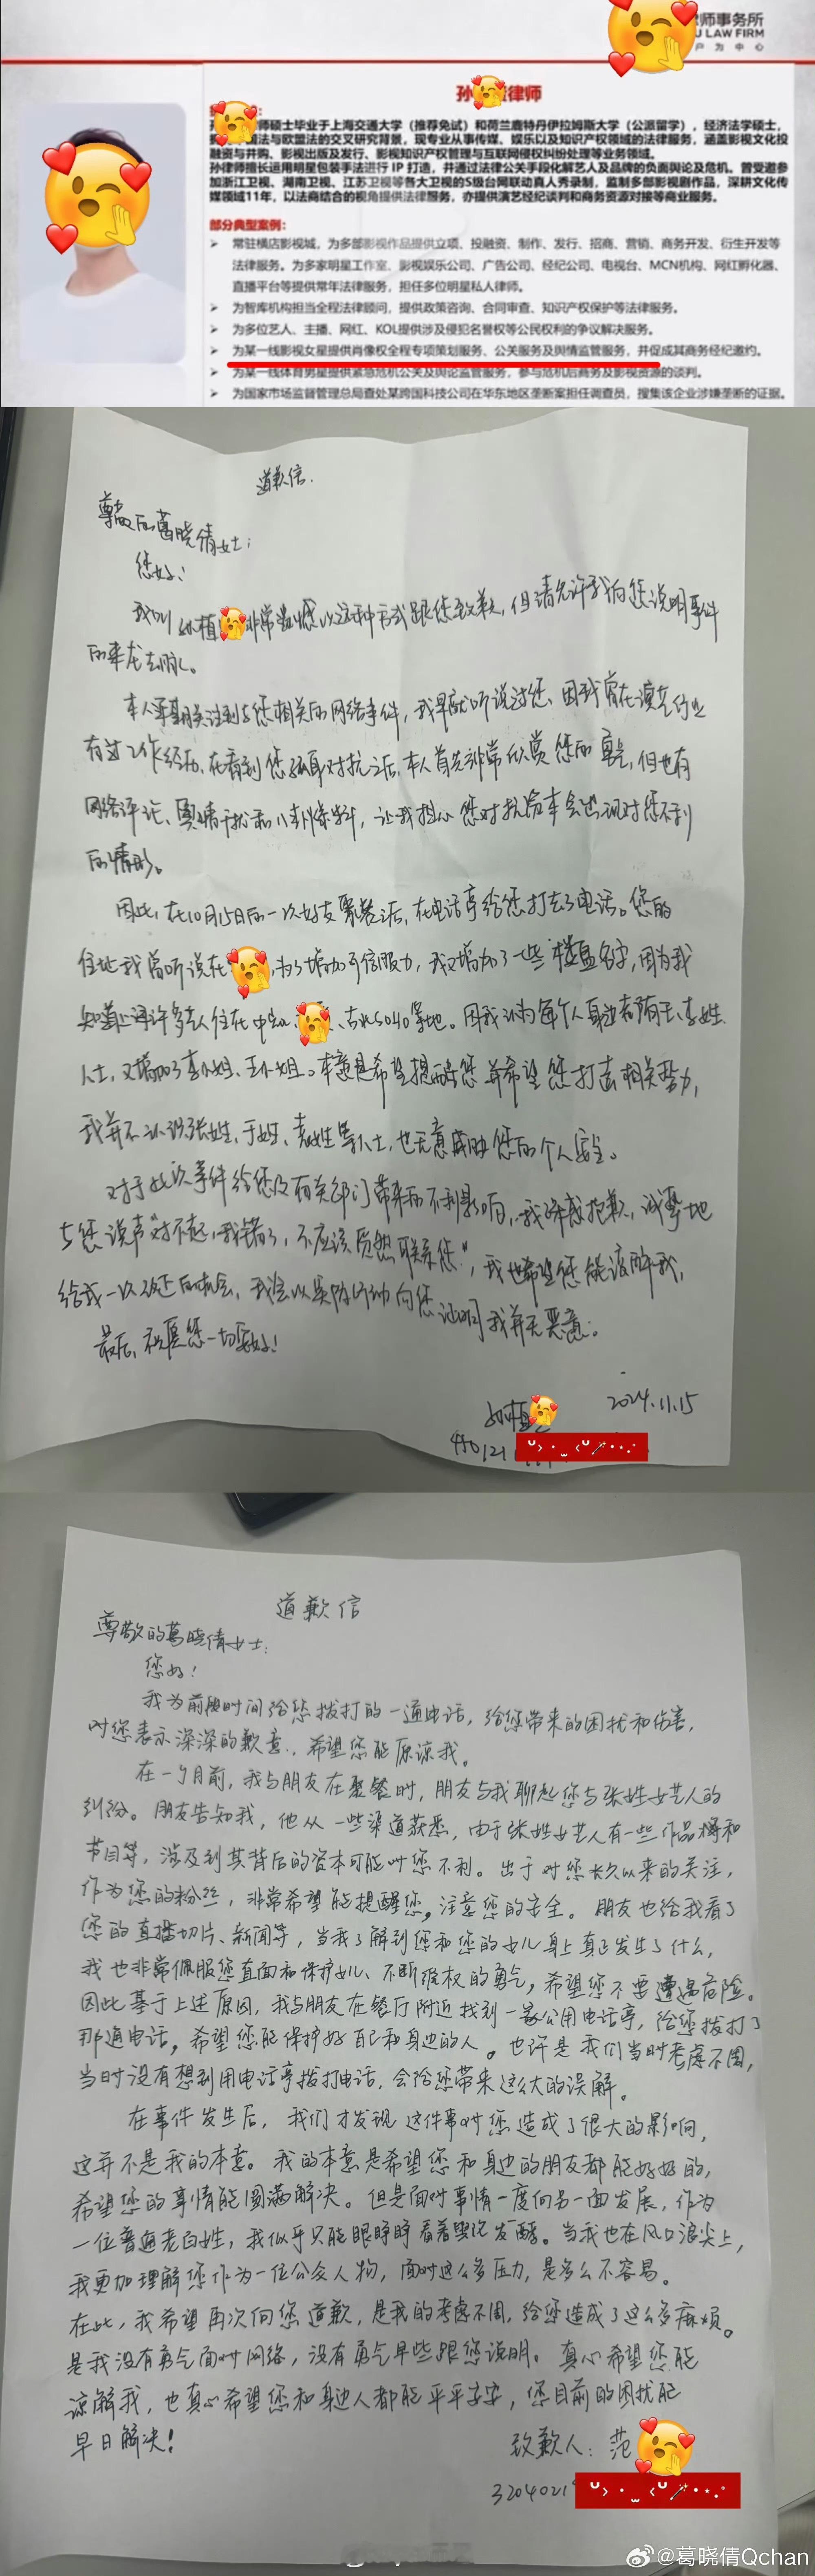 师事务所
U LAW FIRM
户 为 中 心
孙 律师
师硕士毕业于上海交通大学（推荐免试）和荷兰鹿特丹伊拉姆斯大学（公派留学），经济法学硕士，
国法与欧盟法的交叉研究背景。现专业从事传媒、娱乐以及知识产权领域的法律服务，涵盖影视文化投
融资与并购、影视出版及发行、影视知识产权管理与互联网侵权纠纷处理等业务领域。
孙律师擅长运用明星包装手法进行 IP 打造，并通过法律公关手段化解艺人及品牌的负面舆论及危机。曾受邀参
加浙江卫视、湖南卫视、江苏卫视等各大卫视的S级台网联动真人秀录制，监制多部影视剧作品，深耕文化传
媒领域11年，以法商结合的视角提供法律服务，亦提供演艺经纪谈判和商务资源对接等商业服务。
部分典型案例：
常驻横店影视城，为多部影视作品提供立项、投融资、制作、发行、招商、营销、商务开发、衍生开发等
法律服务。为多家明星工作室、影视娱乐公司、广告公司、经纪公司、电视台、MCN机构、网红孵化器、
直播平台等提供常年法律服务，担任多位明星私人律师。
为智库机构担当全程法律顾问，提供政策咨询、合同审查、知识产权保护等法律服务。
为多位艺人、主播、网红、KOL提供涉及侵犯名誉权等公民权利的争议解决服务。
为某一线影视女星提供肖像权全程专项策划服务、公关服务及舆情监管服务，并促成其商务经纪邀约。
为某一线体育男星提供紧急危机公关及舆论监管服务，参与危机后商务及影视资源的谈判。
为国家市场监督管理总局查处某跨国科技公司在华东地区垄断案担任调查员，搜集该企业涉嫌垄断的证据。
道歉信.
尊敬的葛晓倩女士：
您好！
我叫孙植 非常遗憾以这种方式跟您致歉，但请允许我向您说明事件
的来龙去脉。
本人 期关注到与您相关的网络事件，我早就听说过您、因我曾在演艺行业
有过工作经历、在看到您 对抗之后，本人首先非常欣赏您的勇气，但也有
网络评论、舆情干扰和八卦爆料，让我担心您对抗资本会出现对您不利
的情形。
因此，在10月15日的一次好友聚餐之后，在电话亭给您打去了电话。您的
住址我曾听说在 ，为了增加可信服力，我又增加了一些楼盘名字，因为我
知道上海许多艺人住在中 、古北SOHO等地。因我认为每个人身边都有王、李姓
人士，又增加了李小姐、王小姐。本意是希望提醒您并希望您打击相关势力，
我并不认识张姓、于姓、袁姓等人士，也无意威胁您的个人安全。
对于此次事件给您及有关部门带来的不利影响，我深感抱歉，诚挚地
与您说声“对不起，我错了，不应该贸然联系您”，我也希望您能谅解我，
给我一次改正的机会，我会以实际行动向您证明我并无恶意。
最后，祝愿您一切安好！
孙植 2024.11.15
道歉信
尊敬的葛晓倩女士：
您好！
我为前段时间给您拨打的一通电话，给您带来的困扰和伤害，
对您表示深深的歉意，希望您能原谅我。
在一个月前，我与朋友在聚餐时，朋友与我聊起您与张姓女艺人的
纠纷。朋友告知我，他从一些渠道获悉，由于张姓女艺人有一些作品 和
节目等，涉及到其背后的资本可能对您不利。出于对您长久以来的关注，
作为您的粉丝，非常希望能提醒您，注意您的安全。朋友也给我看了
您的直播切片、新闻等，当我了解到您和您的女儿身上真正发生了什么，
我也非常佩服您直面和保护女儿、不断维权的勇气，希望您不要遭遇危险。
因此基于上述原因，我与朋友在餐厅附近找到一家公用电话亭，给您拨打了
那通电话，希望您能保护好自己和身边的人。也许是我们当时考虑不周，
当时没有想到用电话亭拨打电话，会给您带来这么大的误解。
在事件发生后，我们才发现这件事对您造成了很大的影响，
这并不是我的本意。我的本意是希望您和身边的朋友都能好好的，
希望您的事情能圆满解决。但是面对事情一度向另一面发展，作为
一位普通老百姓，我似乎只能眼睁睁看着舆论发酵。当我也在风口浪尖上，
我更加理解您作为一位公众人物，面对这么多压力，是多么不容易。
在此，我希望再次向您道歉，是我的考虑不周，给您造成了这么多麻烦。
是我没有勇气面对网络，没有勇气早些跟您说明。真心希望您能
谅解我，也真心希望您和身边人都能平平安安，您目前的困扰能
早日解决！
致歉人：范
3204021
@葛晓倩Qchan